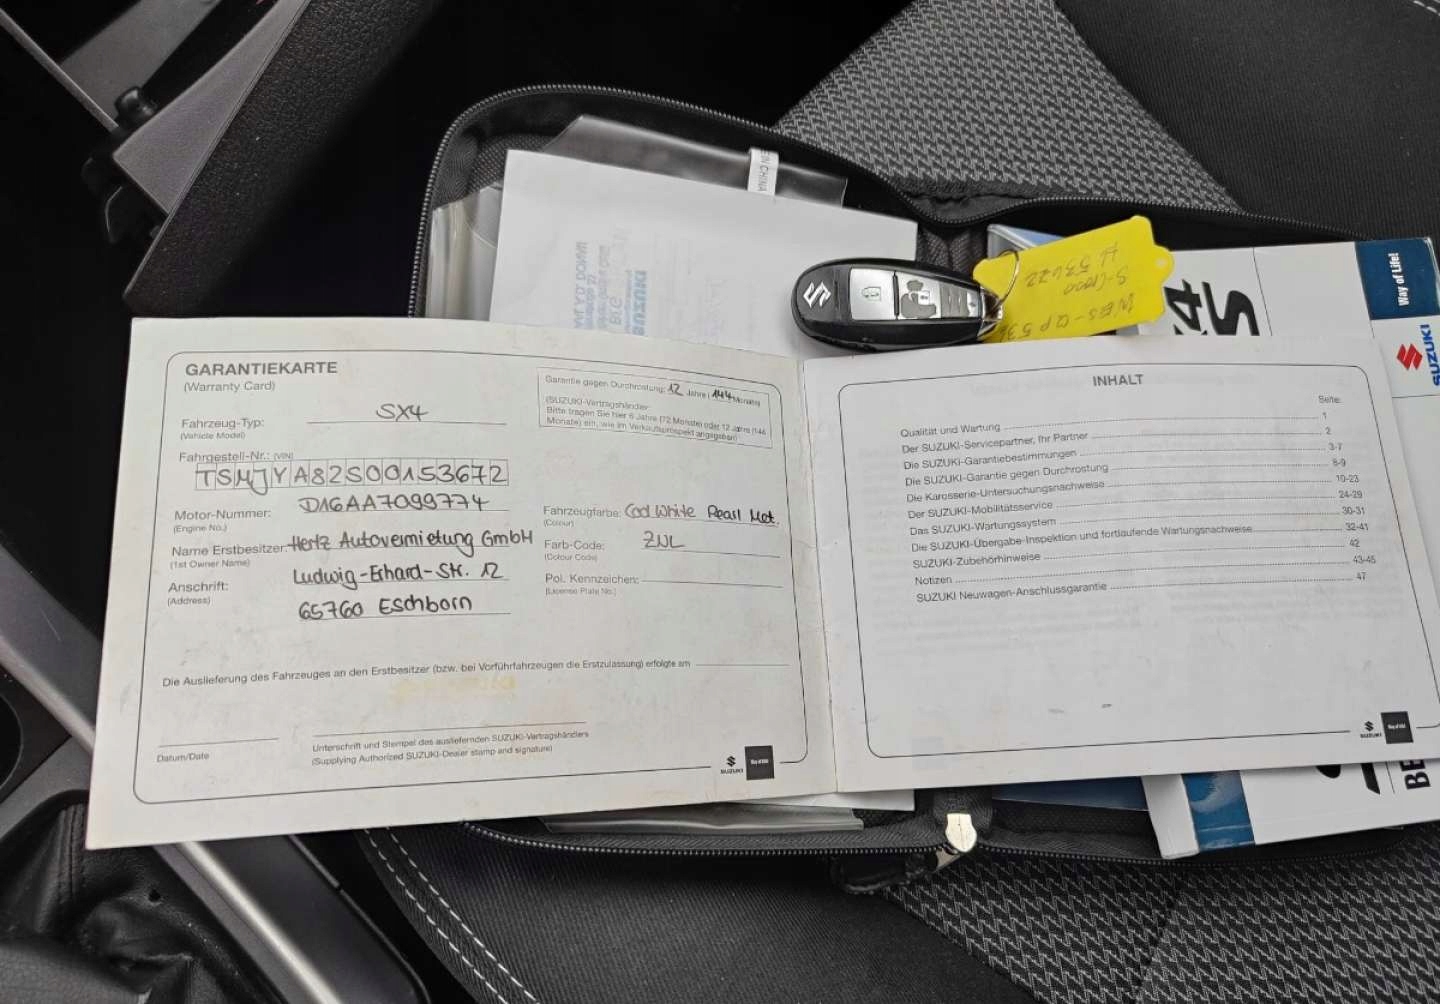 IN CHINA
SUZUKI
H 53672
S-Cross
WES-QP 536
X4
S
Way of Life!
SUZUKI
GARANTIEKARTE
(Warranty Card)
Fahrzeug-Typ: SX4
(Vehicle Model)
Fahrgestell-Nr.: (VIN)
TSMJYA82S00153672
Motor-Nummer: D16AA7099774
(Engine No.)
Name Erstbesitzer: Hertz Autovermietung GmbH
(1st Owner Name)
Anschrift: Ludwig-Erhard-Str. 12
(Address)
65760 Eschborn
Garantie gegen Durchrostung: 12 Jahre (144 Monate)
(SUZUKI-Vertragshändler:
Bitte tragen Sie hier 6 Jahre (72 Monate) oder 12 Jahre (146
Monate) ein, wie im Verkaufsprospekt angegeben)
Fahrzeugfarbe: Cool White Pearl Met.
(Colour)
Farb-Code: ZNL
(Colour Code)
Pol. Kennzeichen:
(License Plate No.)
Die Auslieferung des Fahrzeuges an den Erstbesitzer (bzw. bei Vorführfahrzeugen die Erstzulassung) erfolgte am
Datum/Date
Unterschrift und Stempel des ausliefernden SUZUKI-Vertragshändlers
(Supplying Authorized SUZUKI-Dealer stamp and signature)
SUZUKI
Way of Life!
INHALT
Seite:
Qualität und Wartung 1
Der SUZUKI-Servicepartner, Ihr Partner 2
Die SUZUKI-Garantiebestimmungen 3-7
Die SUZUKI-Garantie gegen Durchrostung 8-9
Die Karosserie-Untersuchungsnachweise 10-23
Der SUZUKI-Mobilitätsservice 24-29
Das SUZUKI-Wartungssystem 30-31
Die SUZUKI-Übergabe-Inspektion und fortlaufende Wartungsnachweise 32-41
SUZUKI-Zubehörhinweise 42
Notizen 43-45
SUZUKI Neuwagen-Anschlussgarantie 47
SUZUKI
Way of Life!
BE